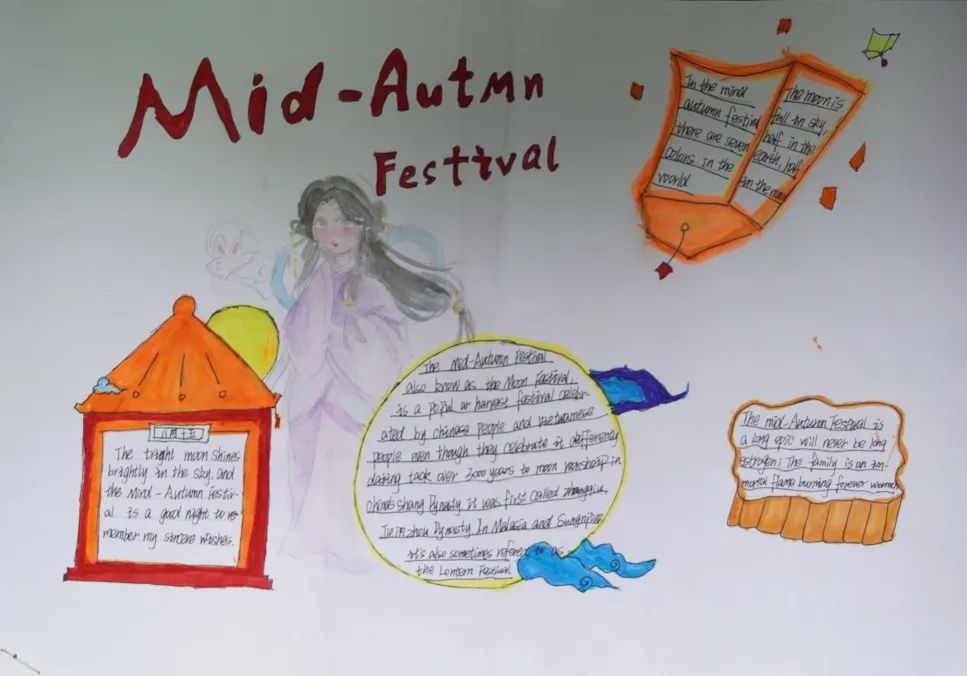 Mid-Autmn
Festival
In the mind
autumn festival
there are seven
colors in the
world
The moon is
fall in sky,
half in the
earth, half
in the man
八月十五
The tright moon shines
brightly in the sky, and
the Mind-Autumn Festiv-
al is a good night to re-
member my sincere wishes.
The Mid-Autumn Festival
also know as the Moon Festival,
is a pupul ar harvest festival celebr-
ated by chinese people and vietnamese
people even though they celebrate it differently
dating tack over 3000 years to moon worship in
china's shang Dynasty. it was first called
Zhou Dynasty. In Malasia and
it's also sometimes refered to as
the Lantern Festival
The mid-Autumn Festival is
a long epic will never be long
estrogen; The family is an im-
mortal flame burning forever warm